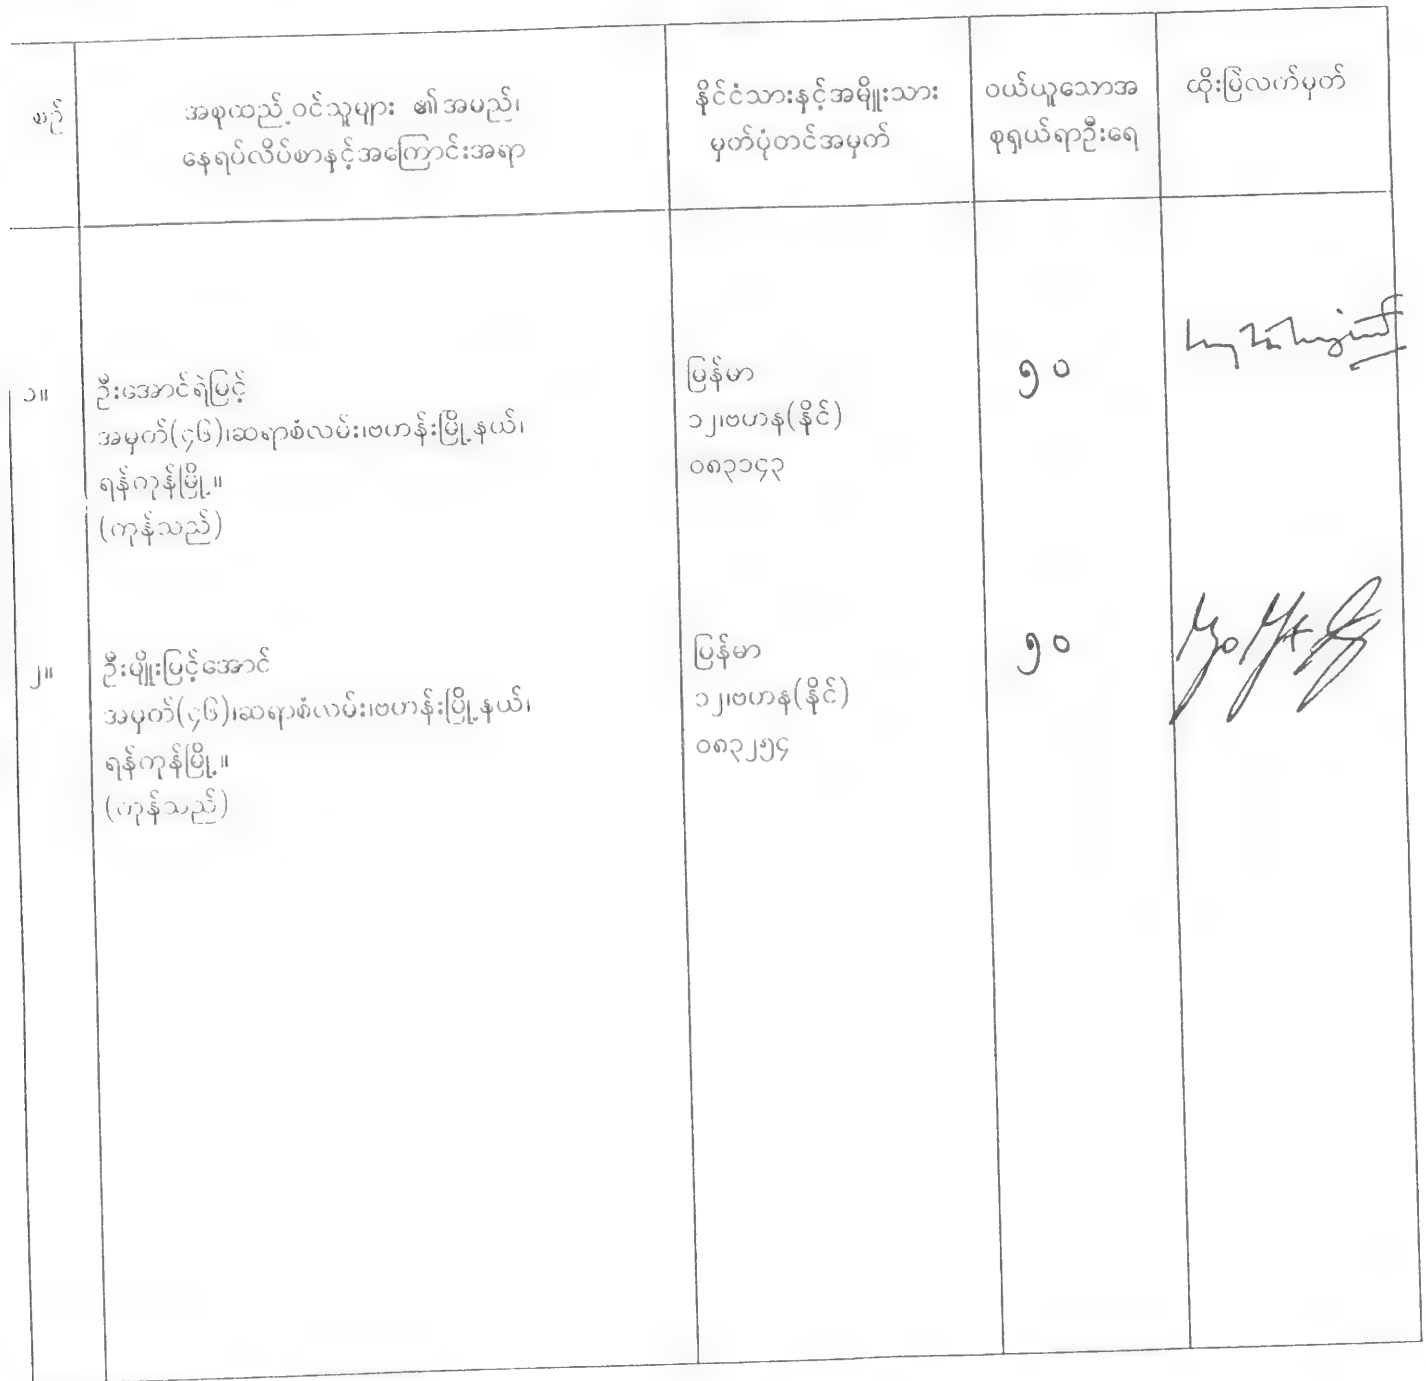 စဉ်
အစုထည့်ဝင်သူများ ၏အမည်၊
နေရပ်လိပ်စာနှင့်အကြောင်းအရာ
နိုင်ငံသားနှင့်အမျိုးသား
မှတ်ပုံတင်အမှတ်
ဝယ်ယူသောအ
စုရှယ်ရာဦးရေ
ထိုးမြဲလက်မှတ်
၁။
ဦးအောင်ရဲမြင့်
အမှတ်(၄၆)၊ဆရာစံလမ်း၊ဗဟန်းမြို့နယ်၊
ရန်ကုန်မြို့။
(ကုန်သည်)
မြန်မာ
၁၂၊ဗဟန(နိုင်)
၀၈၃၁၄၃
၅၀
၂။
ဦးမျိုးမြင့်အောင်
အမှတ်(၄၆)၊ဆရာစံလမ်း၊ဗဟန်းမြို့နယ်၊
ရန်ကုန်မြို့။
(ကုန်သည်)
မြန်မာ
၁၂၊ဗဟန(နိုင်)
၀၈၃၂၅၄
၅၀